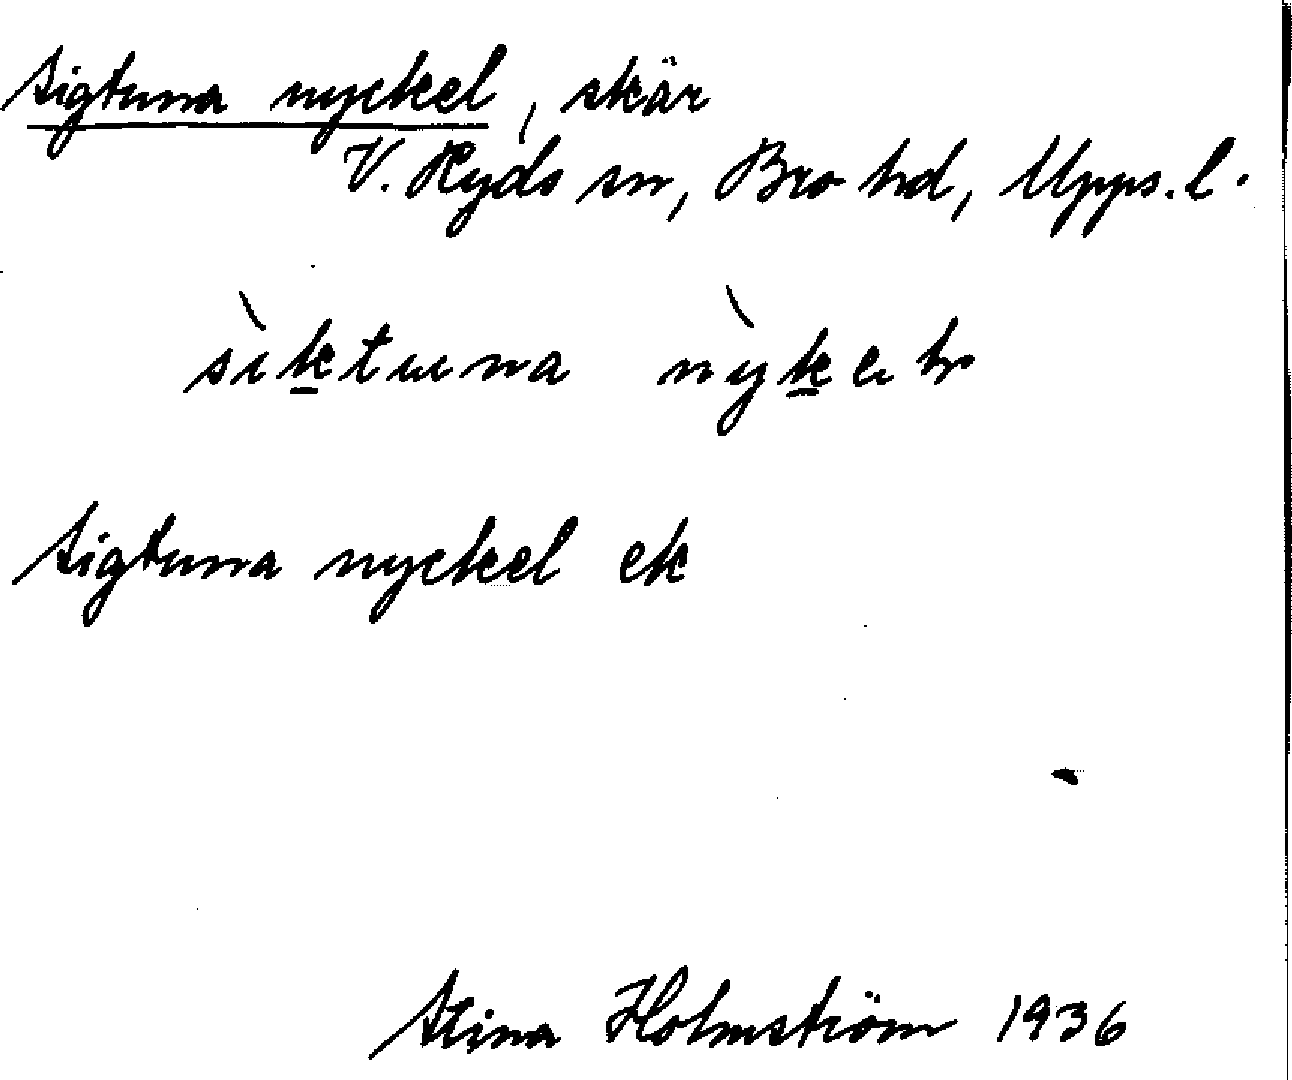 Sigtuna nyckel, skär
V. Ryds sn, Bro hd, Upps. l.
sìktuna nỳkeln
Sigtuna nyckel ek
Stina Holmström 1936